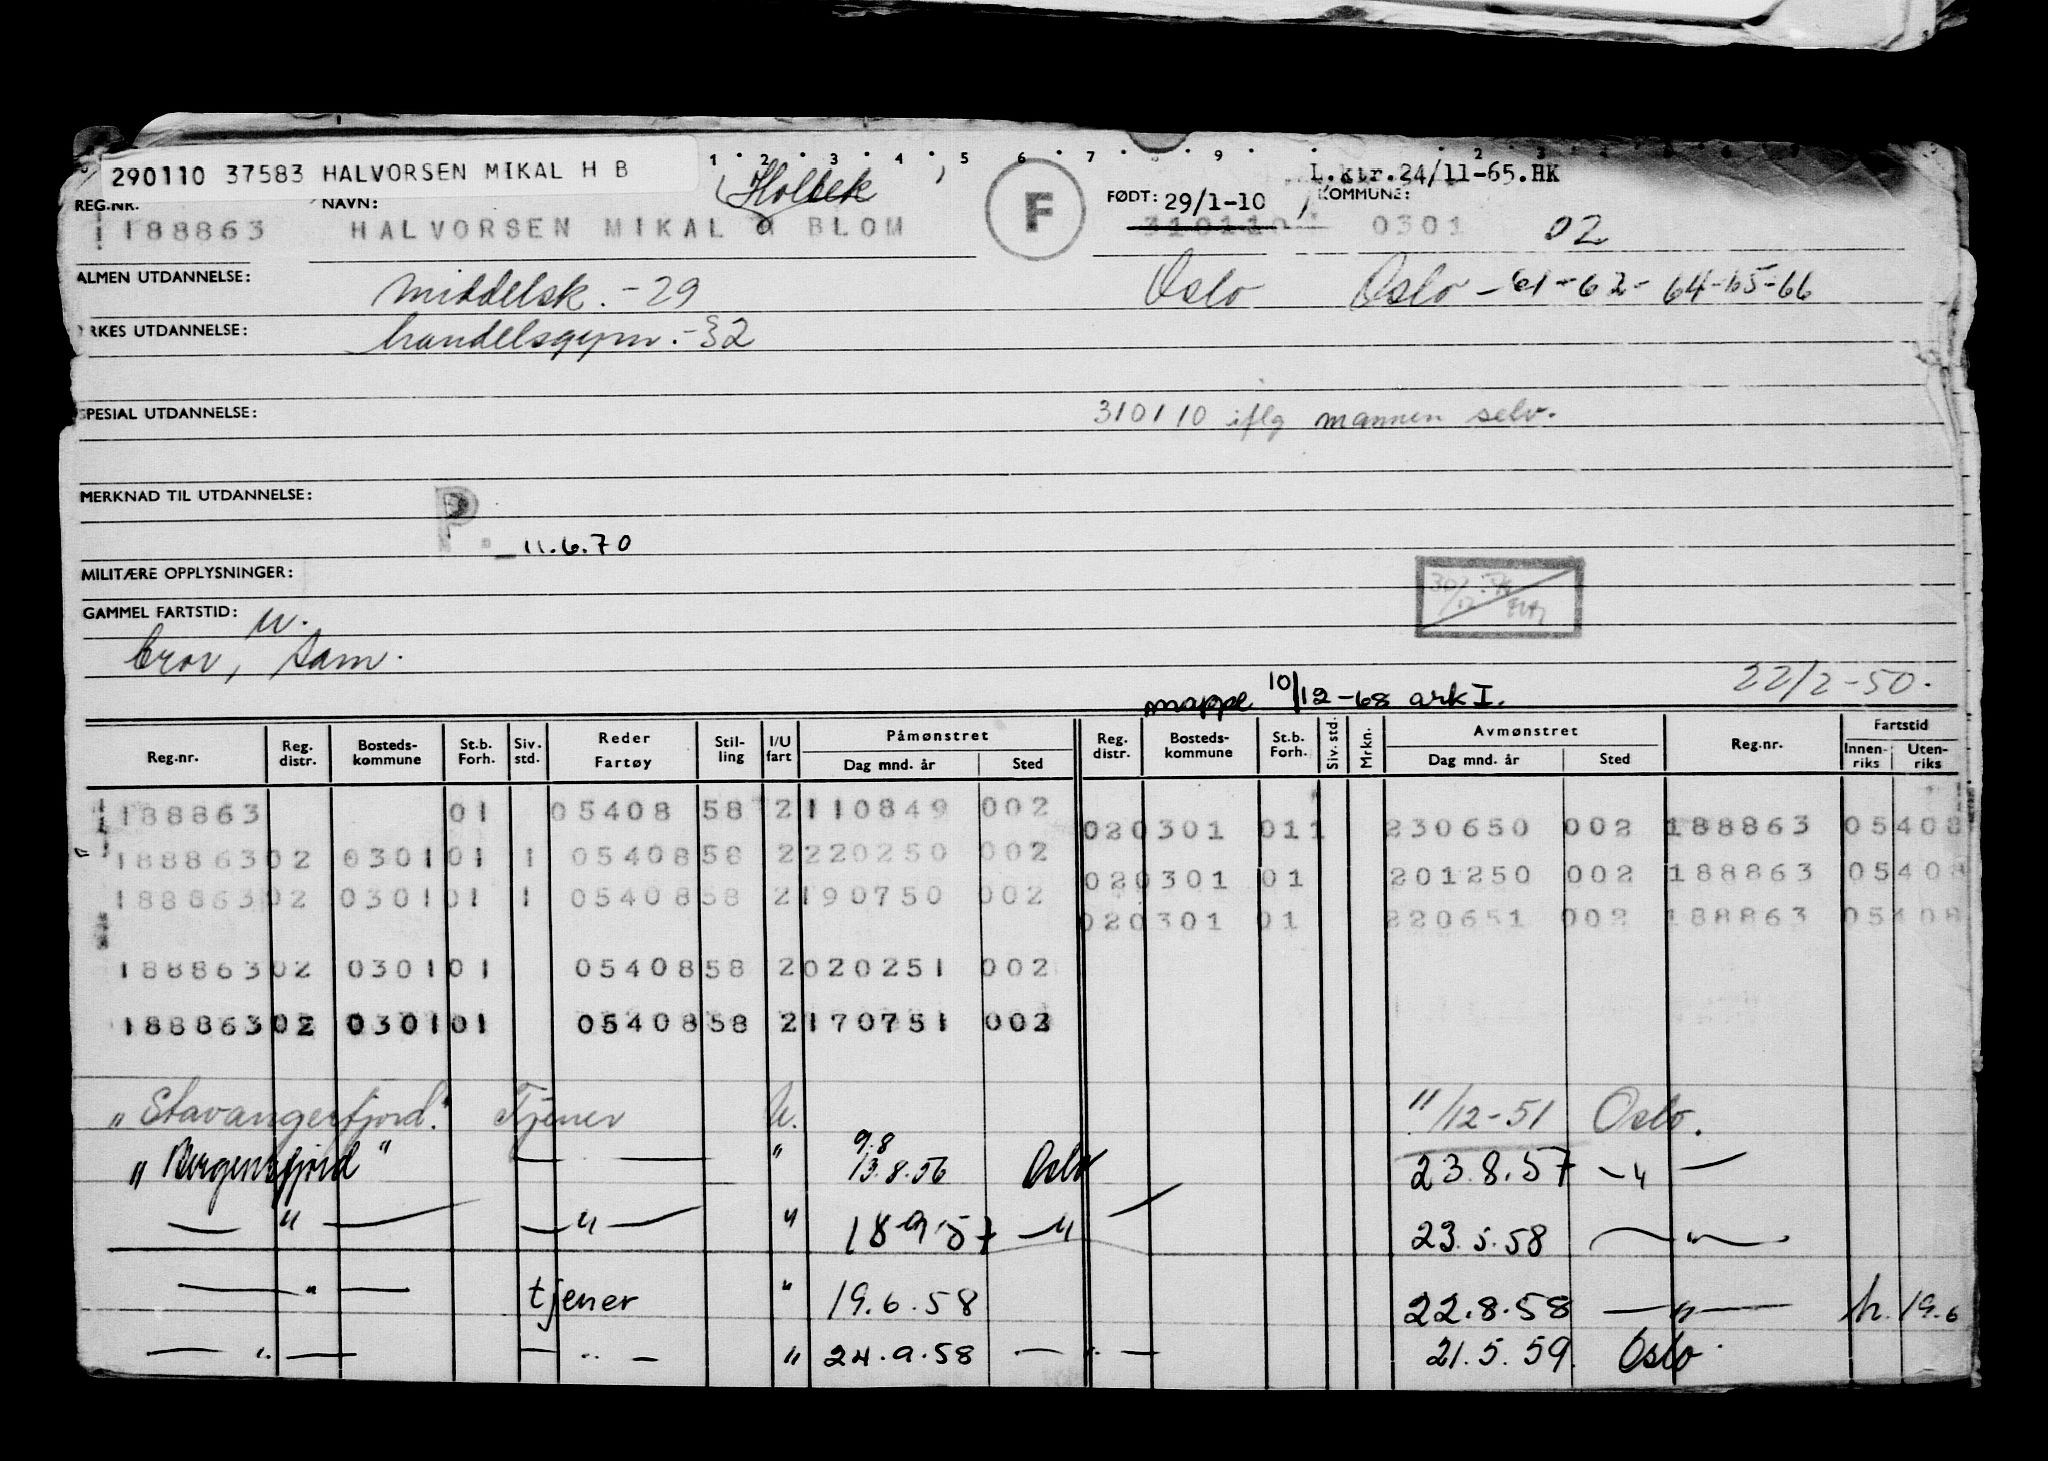 290110 37583 HALVORSEN MIKAL H B
1 2 3 4 5 6 7 8 9
L.ktr.24/11-65.HK
Holbek
REG.NR. NAVN: FØDT: 29/1-10 KOMMUNE:
188863 HALVORSEN MIKAL BLOM F 310110 0301 02
ALMEN UTDANNELSE: middelsk. -29 Oslo Oslo -61-62-64-65-66
YRKES UTDANNELSE: handelsgym. -32
SPESIAL UTDANNELSE: 310110 iflg mannen selv.
MERKNAD TIL UTDANNELSE:
P. 11.6.70
MILITÆRE OPPLYSNINGER:
GAMMEL FARTSTID: u.
22/2-50.
mappe 10/12-68 ark I.
Reg.nr. Reg. distr. Bosteds-kommune St.b. Forh. Siv. std. Reder Fartøy Stil-ling I/U fart Påmønstret Dag mnd. år Sted Reg. distr. Bosteds-kommune St.b. Forh. Siv. std. Mrkn. Avmønstret Dag mnd. år Sted Reg.nr. Fartstid Innen-riks Uten-riks
188863 01 05408 58 2 110849 002 02 0301 011 230650 002 188863 05408
188863 02 0301 01 1 05408 58 2 220250 002 02 0301 01 201250 002 188863 05408
188863 02 0301 01 1 05408 58 2 190750 002 02 0301 01 220651 002 188863 05408
188863 02 0301 01 05408 58 2 020251 002
188863 02 0301 01 05408 58 2 170751 002
"Stavangerfjord." Tjener U. 11/12-51 Oslo.
"Bergensfjord" — — " 9.8 13.8.56 Oslo 23.8.57 — " —
— " — — " — " 18.9.57 — " — 23.5.58 — " —
— " — tjener " 19.6.58 22.8.58 — " — h. 19.6
— " — — " — " 24.9.58 — " — 21.5.59. Oslo